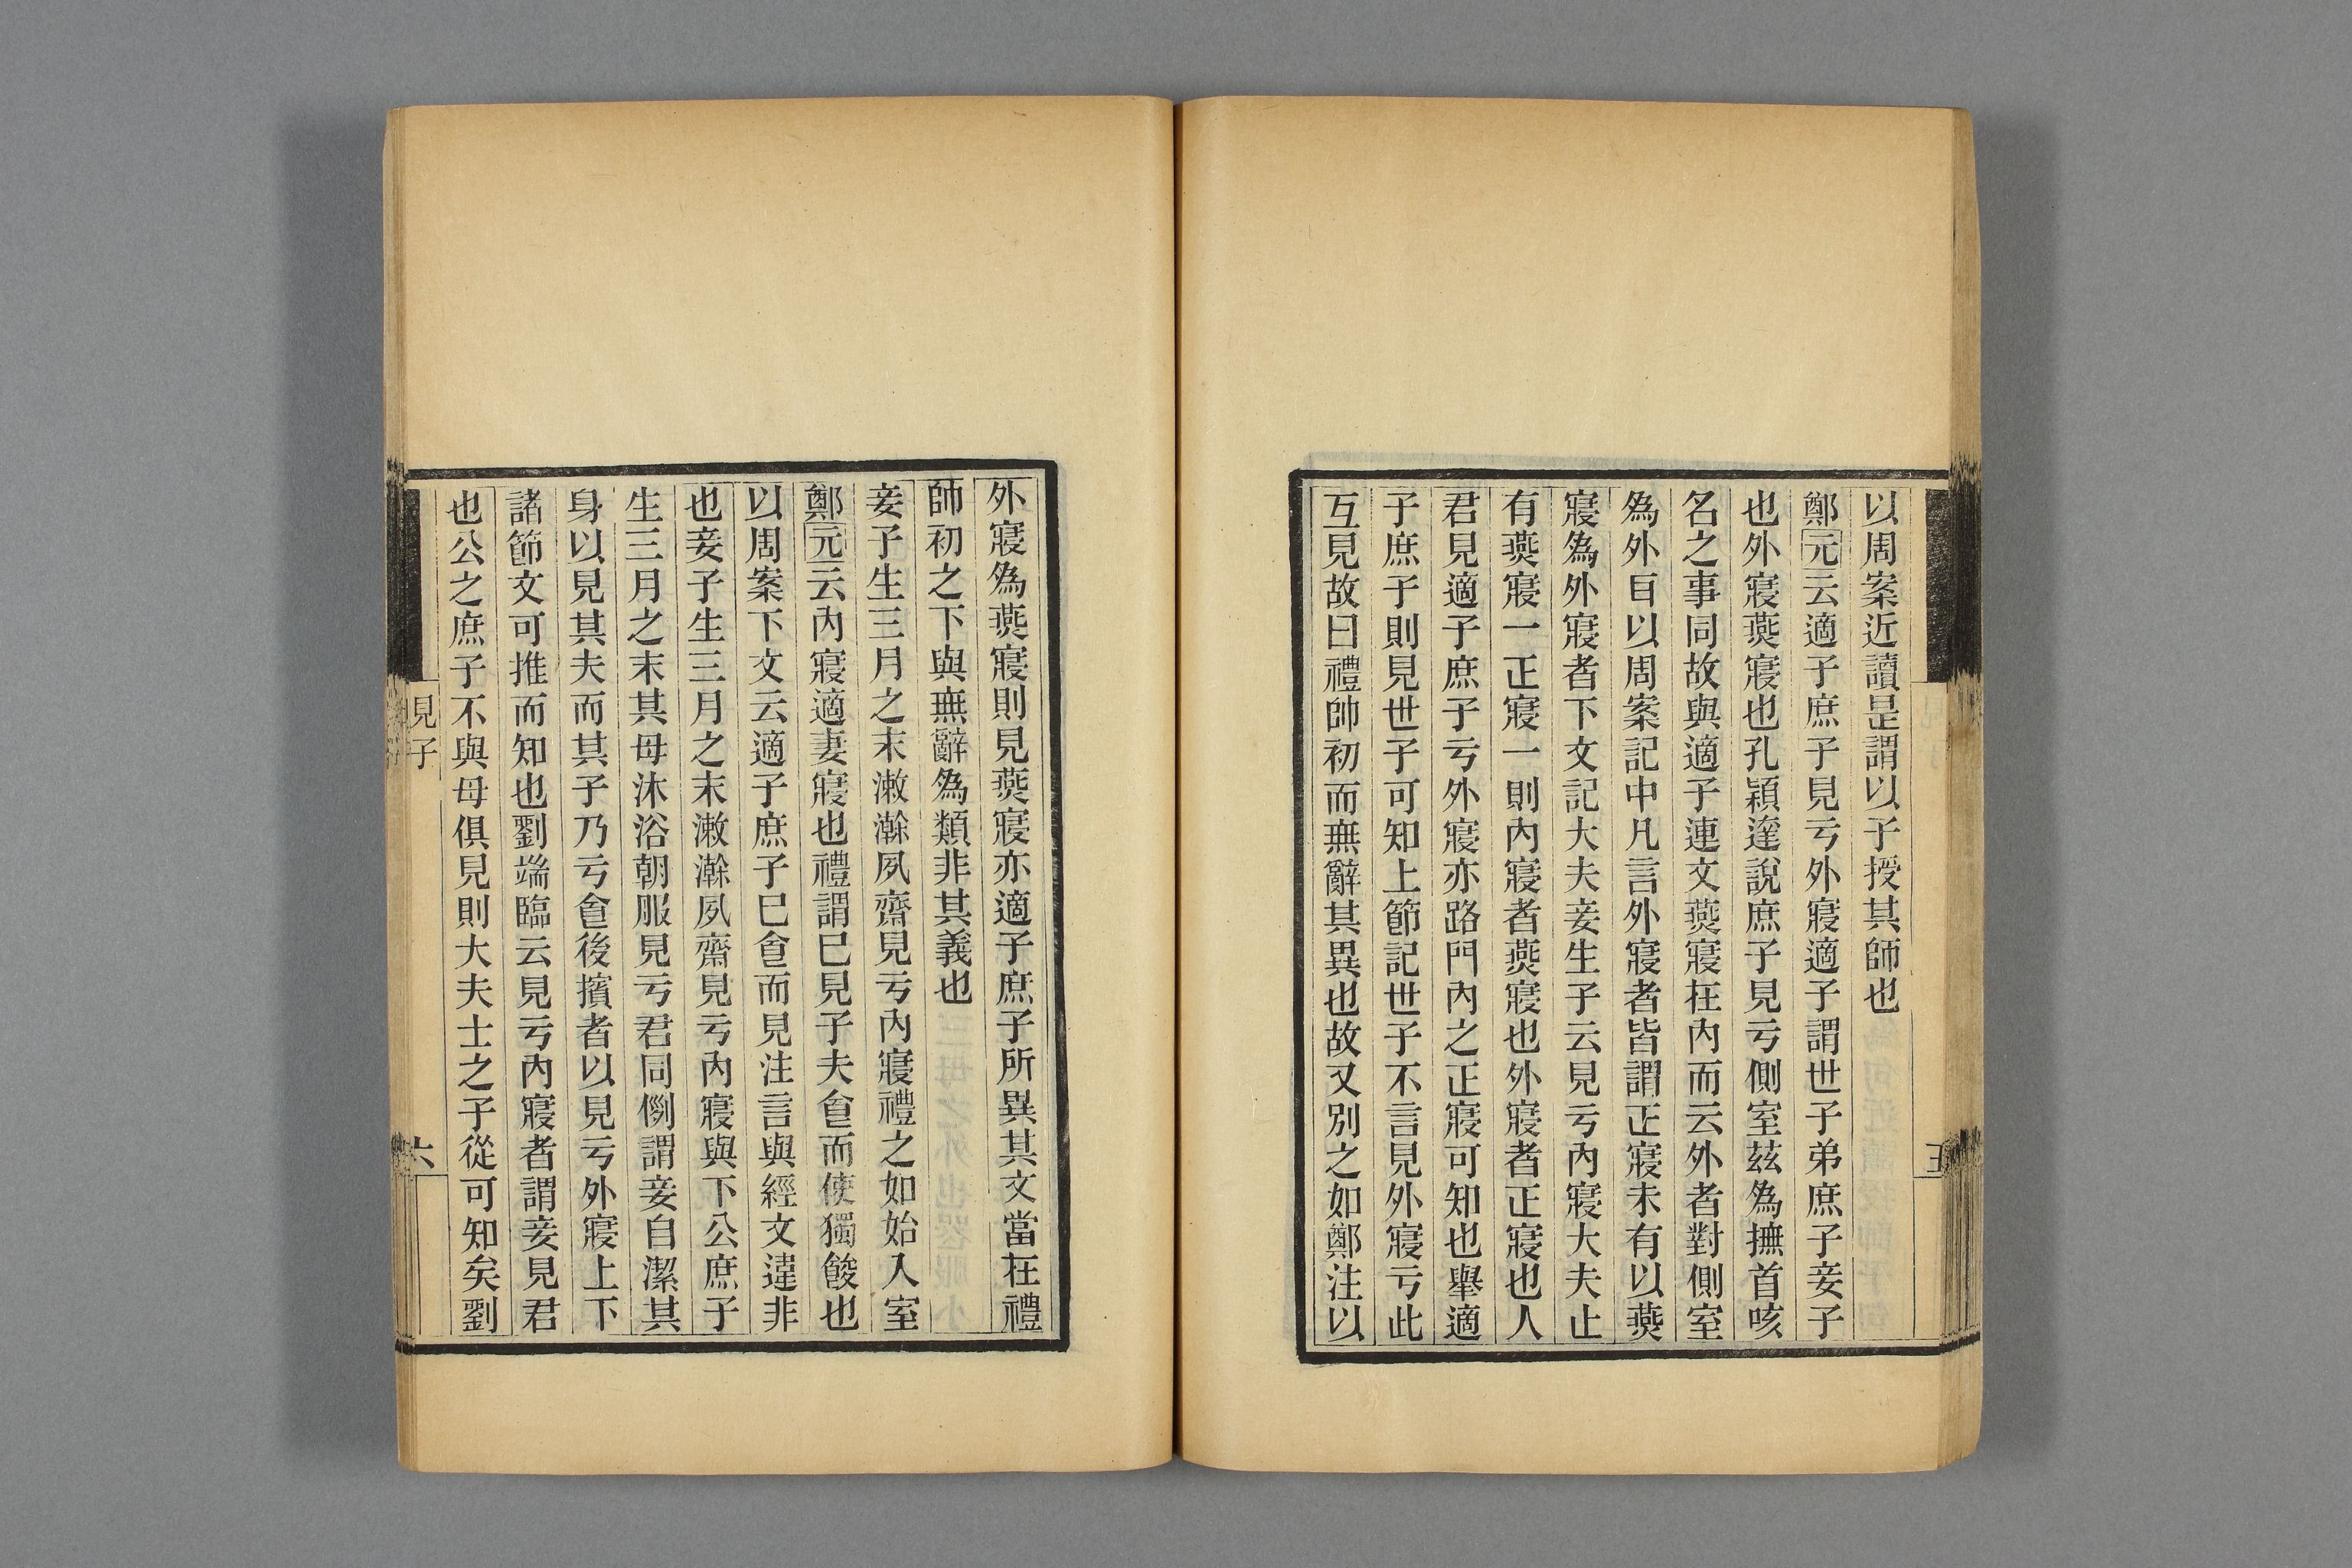 以周案近讀是謂以子授其師也
鄭元云適子庶子見亏外寢適子謂世子弟庶子妾子
也外寢燕寢也孔穎達說庶子見亏側室茲為撫首咳
名之事同故與適子連文燕寢在內而云外者對側室
為外目以周案記中凡言外寢者皆謂正寢未有以燕
寢為外寢者下文記大夫妾生子云見亏內寢大夫止
有燕寢一正寢一則內寢者燕寢也外寢者正寢也人
君見適子庶子亏外寢亦路門內之正寢可知也舉適
子庶子則見世子可知上節記世子不言見外寢亏此
互見故曰禮帥初而無辭其異也故又別之如鄭注以
外寢為燕寢則見燕寢亦適子庶子所異其文當在禮
師初之下與無辭為類非其義也
妾子生三月之末漱澣夙齋見亏內寢禮之如始入室
鄭元云內寢適妻寢也禮謂已見子夫食而使獨餕也
以周案下文云適子庶子已食而見注言與經文違非
也妾子生三月之末漱澣夙齋見亏內寢與下公庶子
生三月之末其母沐浴朝服見亏君同例謂妾自潔其
身以見其夫而其子乃亏食後擯者以見亏外寢上下
諸節文可推而知也劉端臨云見亏內寢者謂妾見君
也公之庶子不與母俱見則大夫士之子從可知矣劉
見子
六